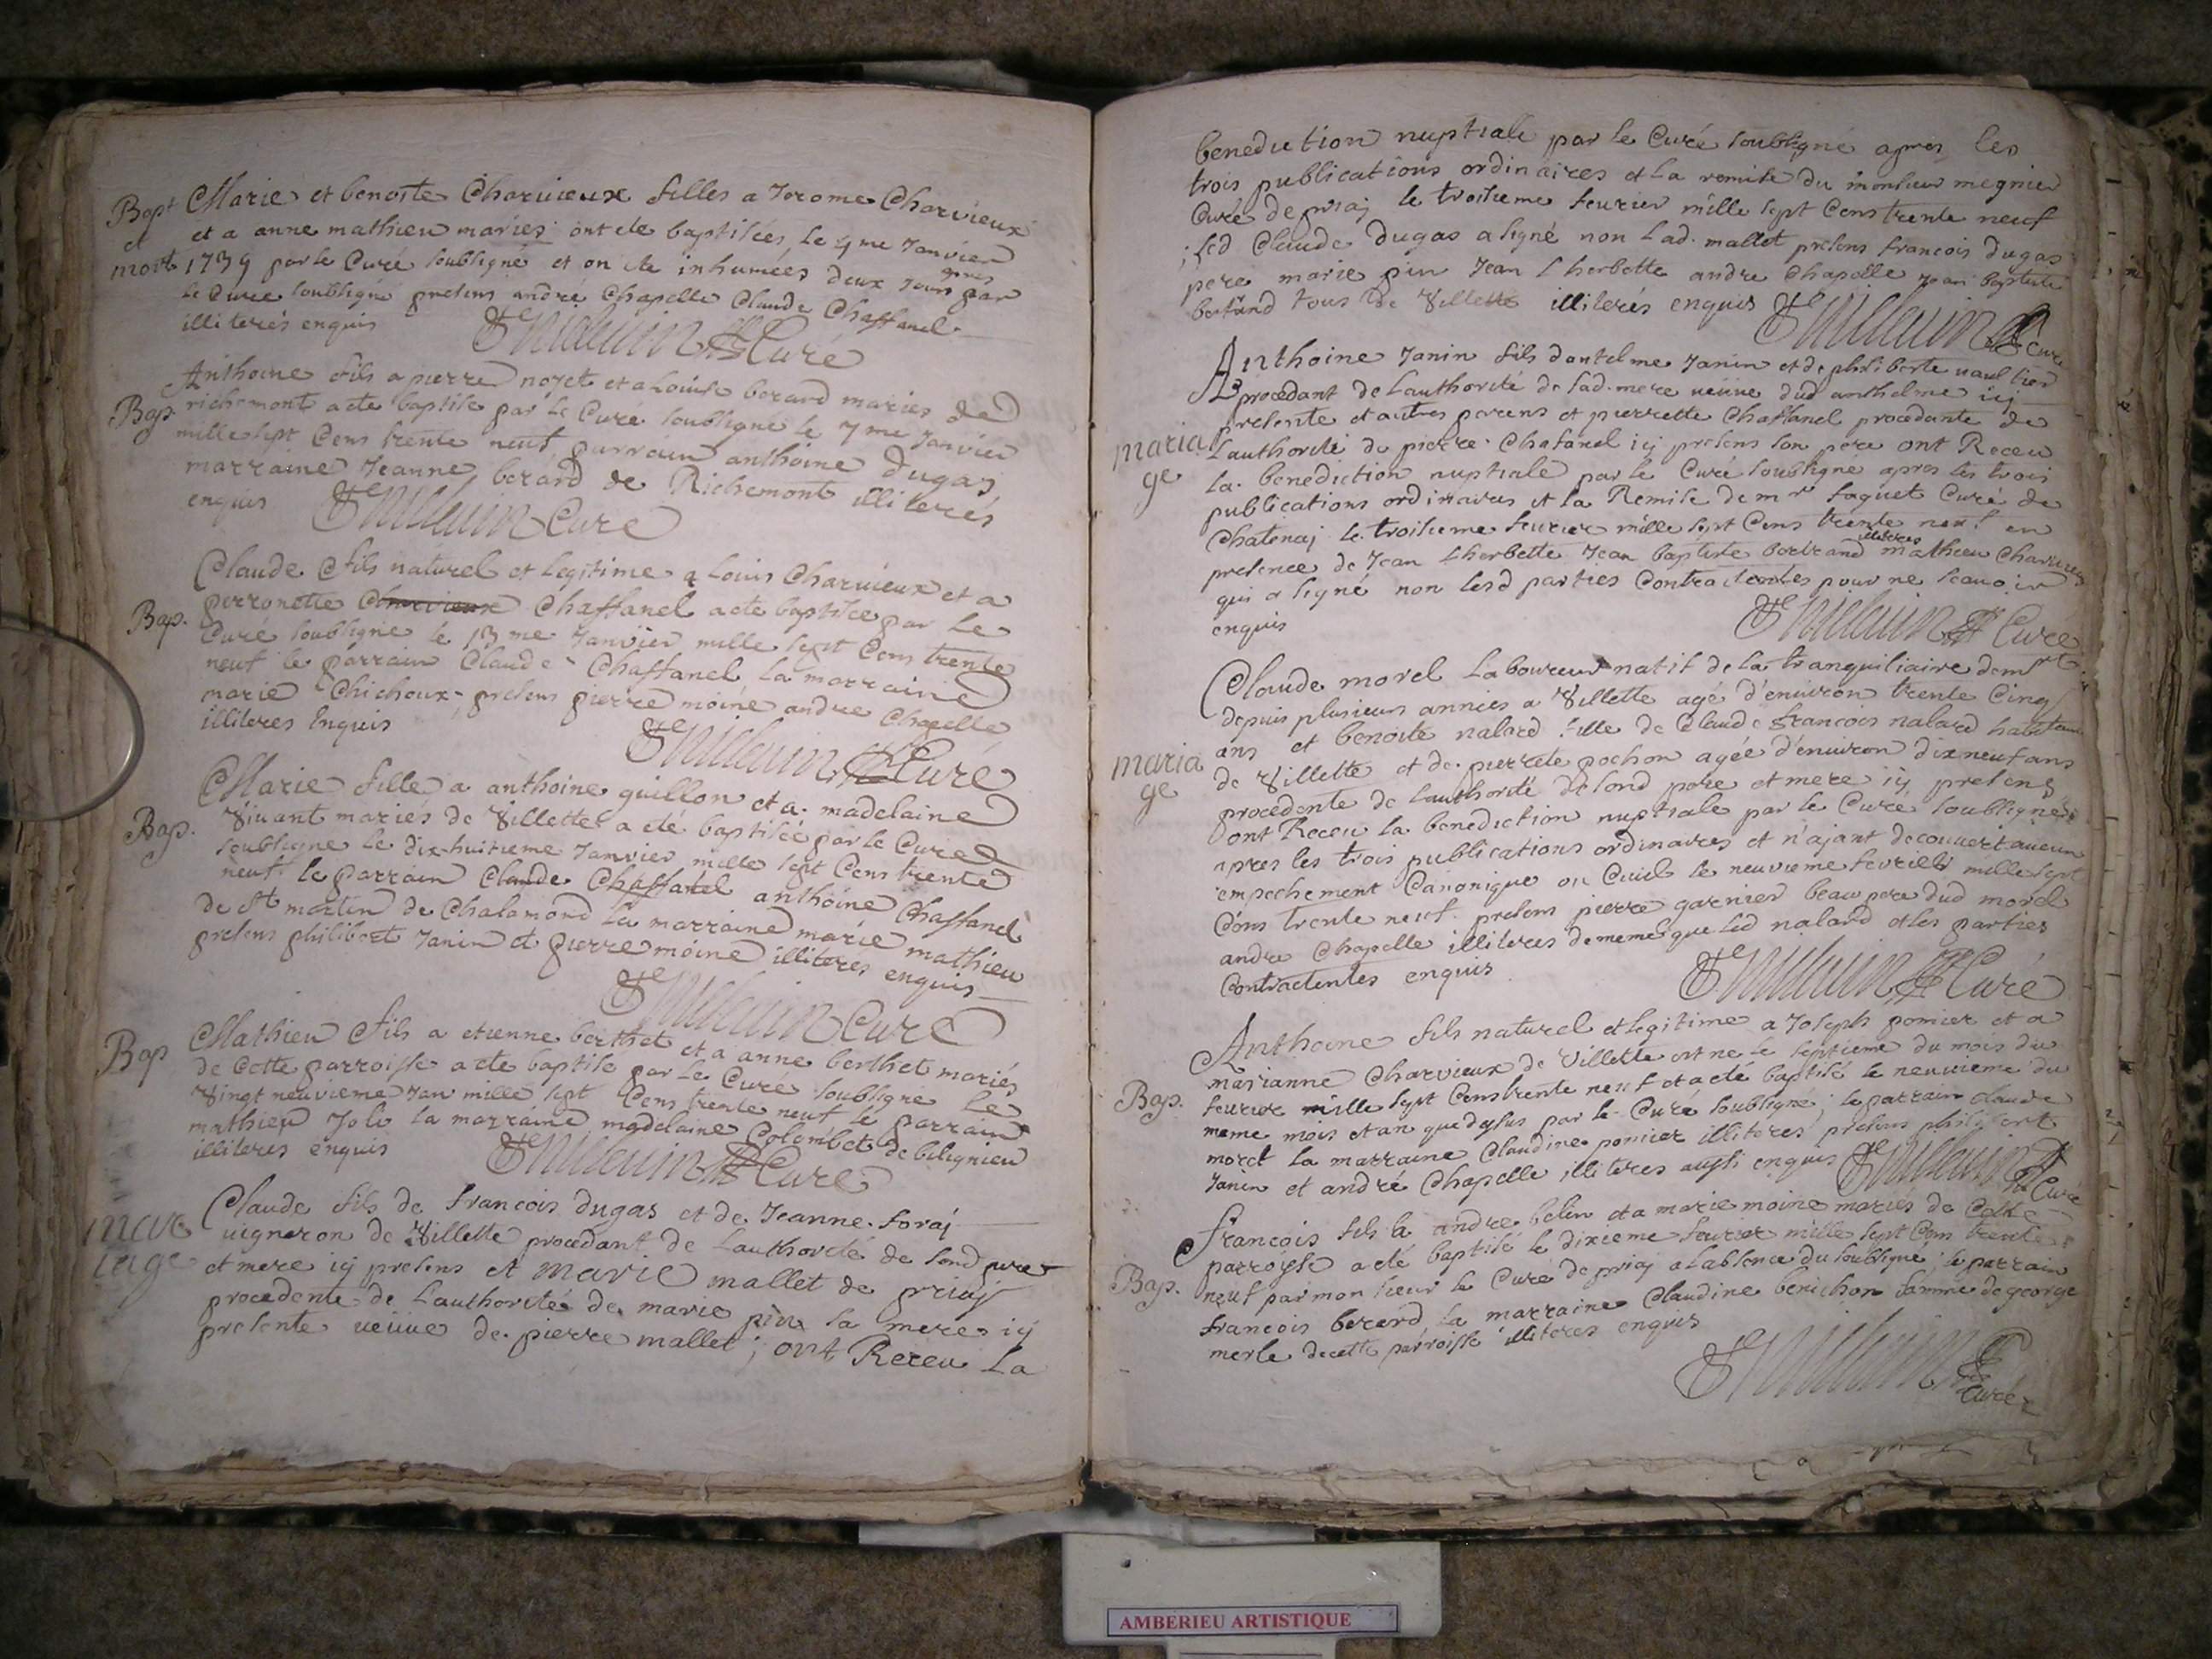 Bapt
et
mort
Marie et benoite Charvieux filles a Jerome Charvieux
et a anne mathieu mariés ont ete baptisées le 4me Janvier
1739 par le Curé soubsigné et on ete inhumées deux jours apres par
le Curé soubsigné presens andré Chapelle Claude Chaffanel
illiterés enquis Curé
Bap.
Anthoine fils a pierre noyet et a Louise berard mariés de
richemont a ete baptisé par le Curé soubsigné le 7me Janvier
mille sept Cens trente neuf parrain anthoine Dugas
marraine Jeanne berard de Richemont illiterés
enquis Curé
Bap.
Claude fils naturel et legitime a Louis Charvieux et a
perronette Charvieux Chaffanel a ete baptisé par le
Curé soubsigné le 13me Janvier mille sept Cens trente
neuf le parrain Claude Chaffanel la marraine
marie Chichoux presens pierre moine andre Chapelle
illiteres Enquis Curé
Bap.
Marie fille a anthoine guillon et a madelaine
Vivant mariés de Villette a eté baptisée par le Curé
soubsigne le dix huitieme Janvier mille sept Cens trente
neuf le parrain Claude Chaffanel anthoine Chaffanel
de st martin de Chalamond la marraine marie mathieu
presens philibert Janin et pierre moine illiteres enquis
Curé
Bap
Mathieu fils a etienne berthet et a anne berthet mariés
de Cette parroisse a ete baptisé par le Curé soubsigne le
Vingt neuvieme Jan mille sept Cens trente neuf le parrain
mathieu Joli la marraine madelaine Colombet de bilignieu
illiteres enquis Curé
mar
iage
Claude fils de francois dugas et de Jeanne foraj
vigneron de Villette procedant de Lauthorité de sond pere
et mere icj presens et marie mallet de priaj
procedente de Lauthorité de marie pin sa mere icj
presente veuve de pierre mallet ; ont Receu La
benediction nuptiale par le Curé soubsigné apres les
trois publications ordinaires et la remise du monsieur megnier
Curé de priaj le troisieme fevrier mille sept Cens trente neuf
; led Claude dugas a signé non lad. mallet presens francois dugas
pere marie pin Jean Lherbette andre Chapelle Jean baptiste
bertrand tous de Villette illiterés enquis Curé
maria
ge
Anthoine Janin fils dantelme Janin et de philiberte vaultier
procedant de Lauthorité de sad. mere veuve dud anthelme icj
presente et autres parens et pierrette Chaffanel procedante de
Lauthorité de pierre Chafanel icj presens son pere ont Receu
la benediction nuptiale par le Curé soubsigné apres les trois
publications ordinaires et la Remise de mr faquet Curé de
Chatenaj le troisieme fevrier mille sept Cens trente neuf en
presence de Jean Lherbette Jean baptiste bertrand illiteres mathieu Charvieux
qui a signé non lesd parties Contractentes pour ne scavoir
enquis Curé
maria
ge
Claude morel Laboureur natif de la tranquiliaire demt
depuis plusieurs années a Villette agé d'environ trente Cinq
ans et benoite nalard fille de Claude francois nalard habitant
de Villette et de pierrete pochon agée d'environ dixneuf ans
procedente de Lauthorité de sond pere et mere icj presens
ont Receu la benediction nuptiale par le Curé soubsigné
apres les trois publications ordinaires et n'ajant decouvert aucun
empechement Canonique ou Civil le neuvieme fevrier mille sept
Cens trente neuf presens pierre garnier beau pere dud morel
andre Chapelle illiteres de meme que led nalard et les parties
Contractentes enquis Curé
Bap.
Anthoine fils naturel et legitime a Joseph pomier et a
marianne Charvieux de Villette est ne le septieme du mois du
fevrier mille sept Cens trente neuf et a eté baptisé le neuvieme du
meme mois et an que dessus par le Curé soubsigne ; le parrain claude
moret La marraine Claudine pomier illiteres presens philibert
Janin et andré Chapelle illiteres aussi enquis Curé
Bap.
francois fils a andre belin et a marie moine mariés de Cette
parroisse a eté baptisé le dixieme fevrier mille sept Cens trente
neuf par mon sieur le Curé de priaj a Labsence du soubsigne ; le parrain
francois berard la marraine Claudine benichon famme de george
merle de cette parroisse illiteres enquis
Curé
AMBERIEU ARTISTIQUE